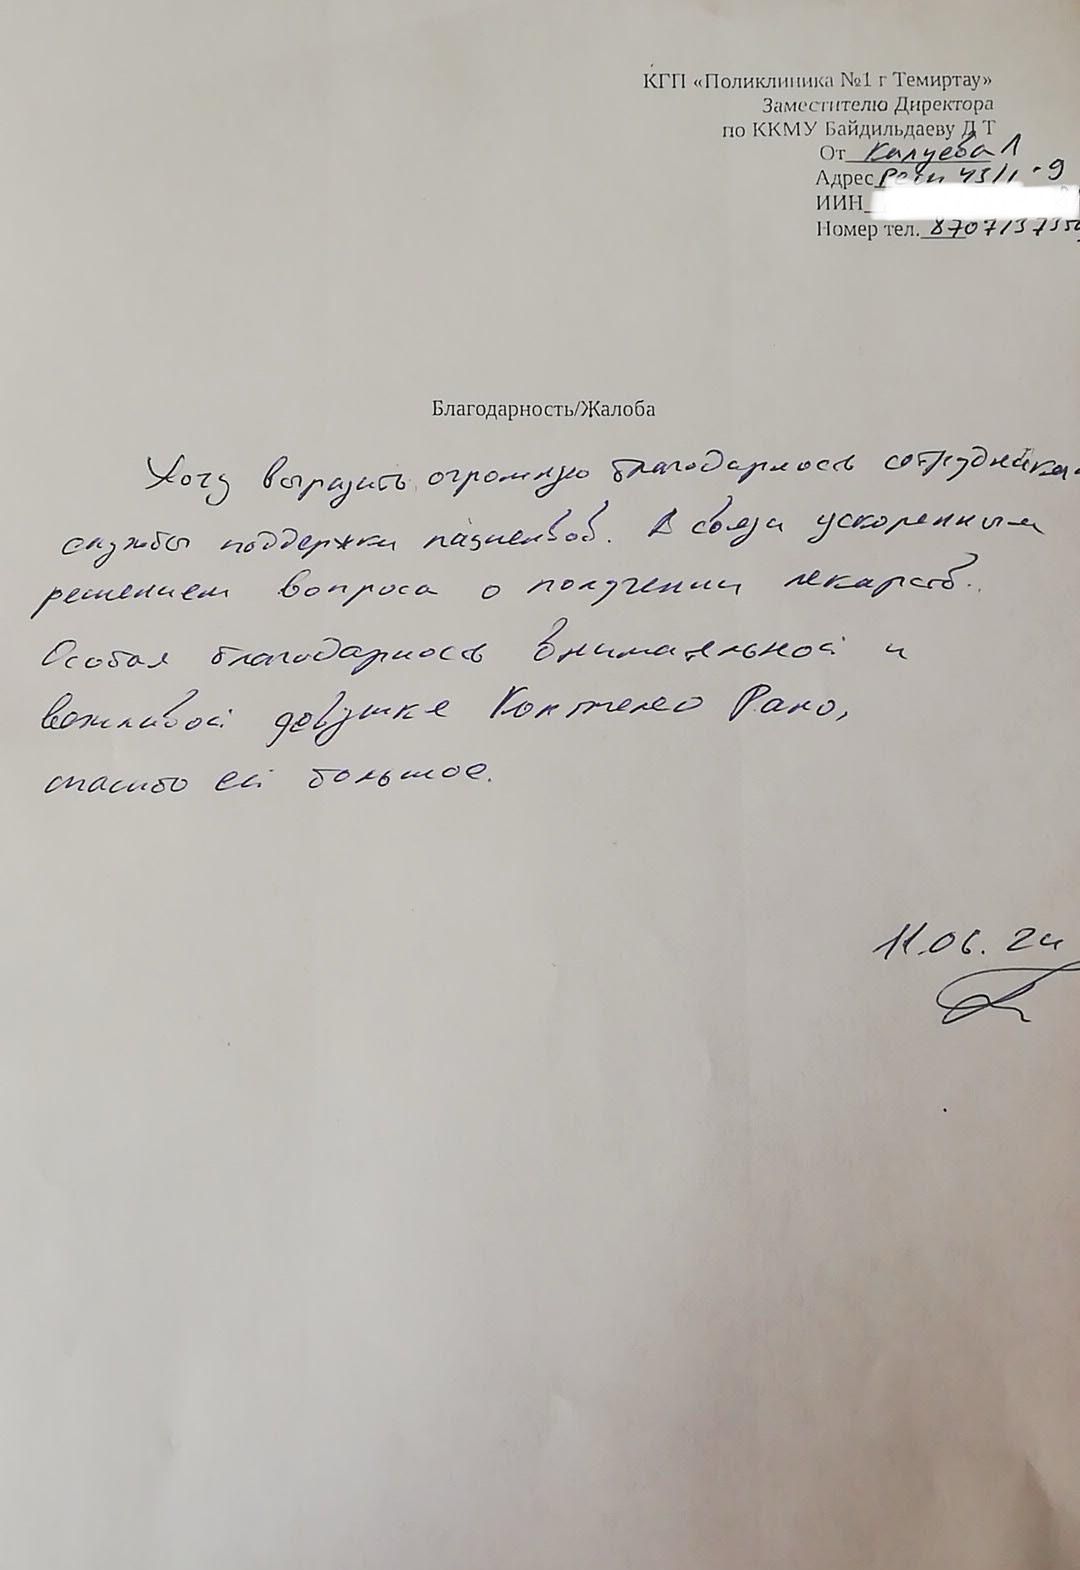 КГП «Поликлиника №1 г Темиртау»
Заместителю Директора
по ККМУ Байдильдаеву Д Т
От Калуева Л
Адрес 43/1 - 9
ИИН
Номер тел.
Благодарность/Жалоба
Хочу выразить огромную благодарность
службы поддержки пациентов. В связи ускоренным
решением вопроса о получении лекарств.
Особая благодарность внимательной и
вежливой девушке Рано,
спасибо ей большое.
11.06.24